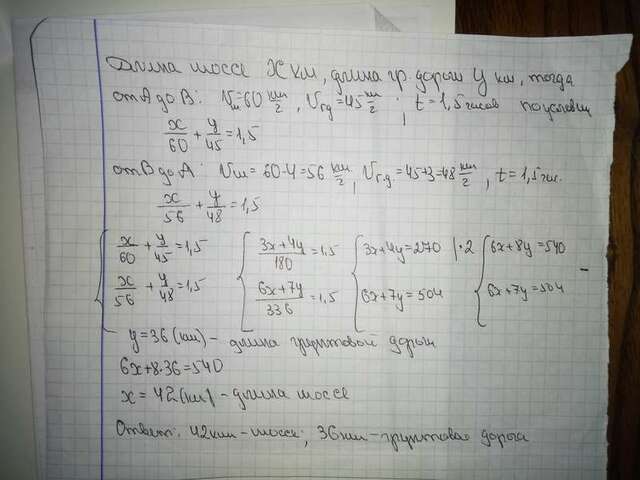 Длина шоссе X км, длина гр. дороги y км, тогда
от А до В: Vш=60 км/г, Vгд=45 км/г; t=1,5 часов по условию
x/60 + y/45 = 1,5
от В до А: Vш = 60-4=56 км/г, Vгд = 45+3=48 км/г, t=1,5 час.
x/56 + y/48 = 1,5
{ x/60 + y/45 = 1,5 { (3x+4y)/180 = 1,5 { 3x+4y=270 |·2 { 6x+8y=540 -
x/56 + y/48 = 1,5 (6x+7y)/336 = 1,5 6x+7y=504 6x+7y=504
y=36 (км) - длина грунтовой дороги
6x+8·36=540
x = 42 (км) - длина шоссе
Ответ: 42км - шоссе; 36км - грунтовая дорога